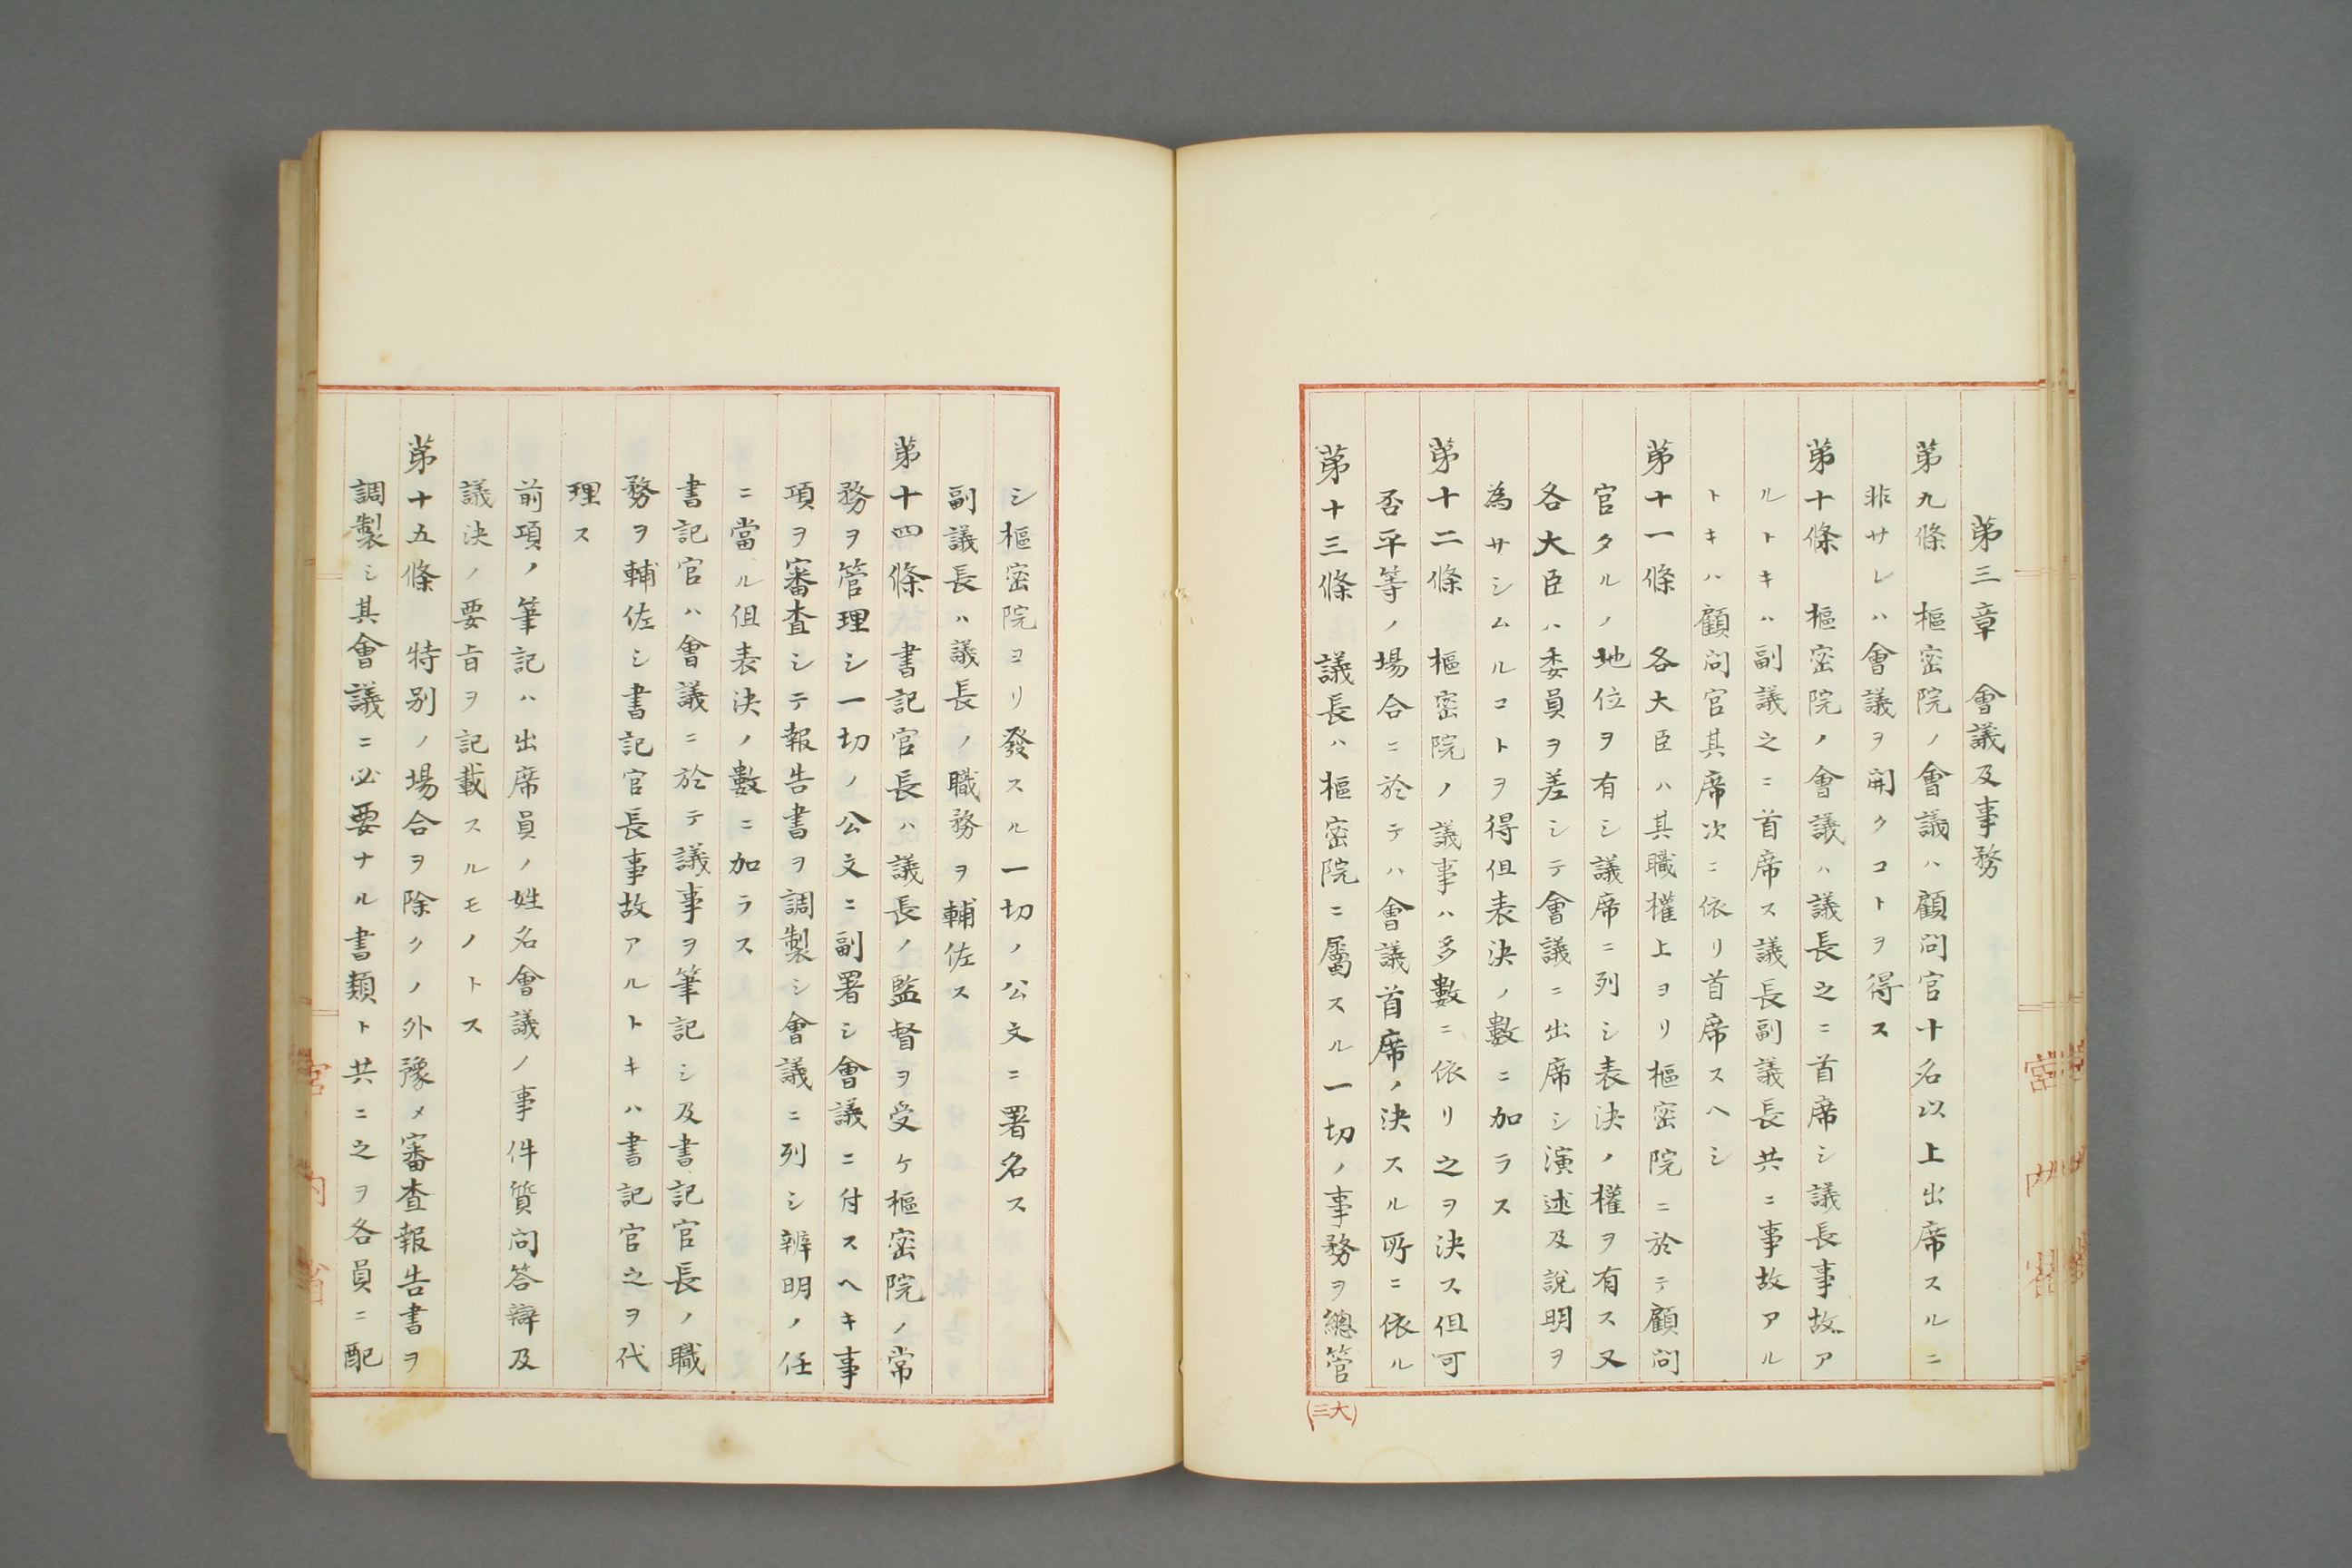 第三章　會議及事務
第九條　樞密院ノ會議ハ顧問官十名以上出席スルニ
非サレハ會議ヲ開クコトヲ得ス
第十條　樞密院ノ會議ハ議長之ニ首席シ議長事故ア
ルトキハ副議之ニ首席ス議長副議長共ニ事故アル
トキハ顧問官其席次ニ依リ首席スヘシ
第十一條　各大臣ハ其職權上ヨリ樞密院ニ於テ顧問
官タルノ地位ヲ有シ議席ニ列シ表決ノ權ヲ有ス又
各大臣ハ委員ヲ差シテ會議ニ出席シ演述及説明ヲ
為サシムルコトヲ得但表決ノ數ニ加ラス
第十二條　樞密院ノ議事ハ多數ニ依リ之ヲ決ス但可
否平等ノ場合ニ於テハ會議首席ノ決スル所ニ依ル
第十三條　議長ハ樞密院ニ屬スル一切ノ事務ヲ總管
(大三)
宮内省
シ樞密院ヨリ發スル一切ノ公文ニ署名ス
副議長ハ議長ノ職務ヲ輔佐ス
第十四條　書記官長ハ議長ノ監督ヲ受ケ樞密院ノ常
務ヲ管理シ一切ノ公文ニ副署シ會議ニ付スヘキ事
項ヲ審査シテ報告書ヲ調製シ會議ニ列シ辨明ノ任
ニ當ル但表決ノ數ニ加ラス
書記官ハ會議ニ於テ議事ヲ筆記シ及書記官長ノ職
務ヲ輔佐シ書記官長事故アルトキハ書記官之ヲ代
理ス
前項ノ筆記ハ出席員ノ姓名會議ノ事件質問答辯及
議決ノ要旨ヲ記載スルモノトス
第十五條　特別ノ場合ヲ除クノ外豫メ審査報告書ヲ
調製シ其會議ニ必要ナル書類ト共ニ之ヲ各員ニ配
宮内省